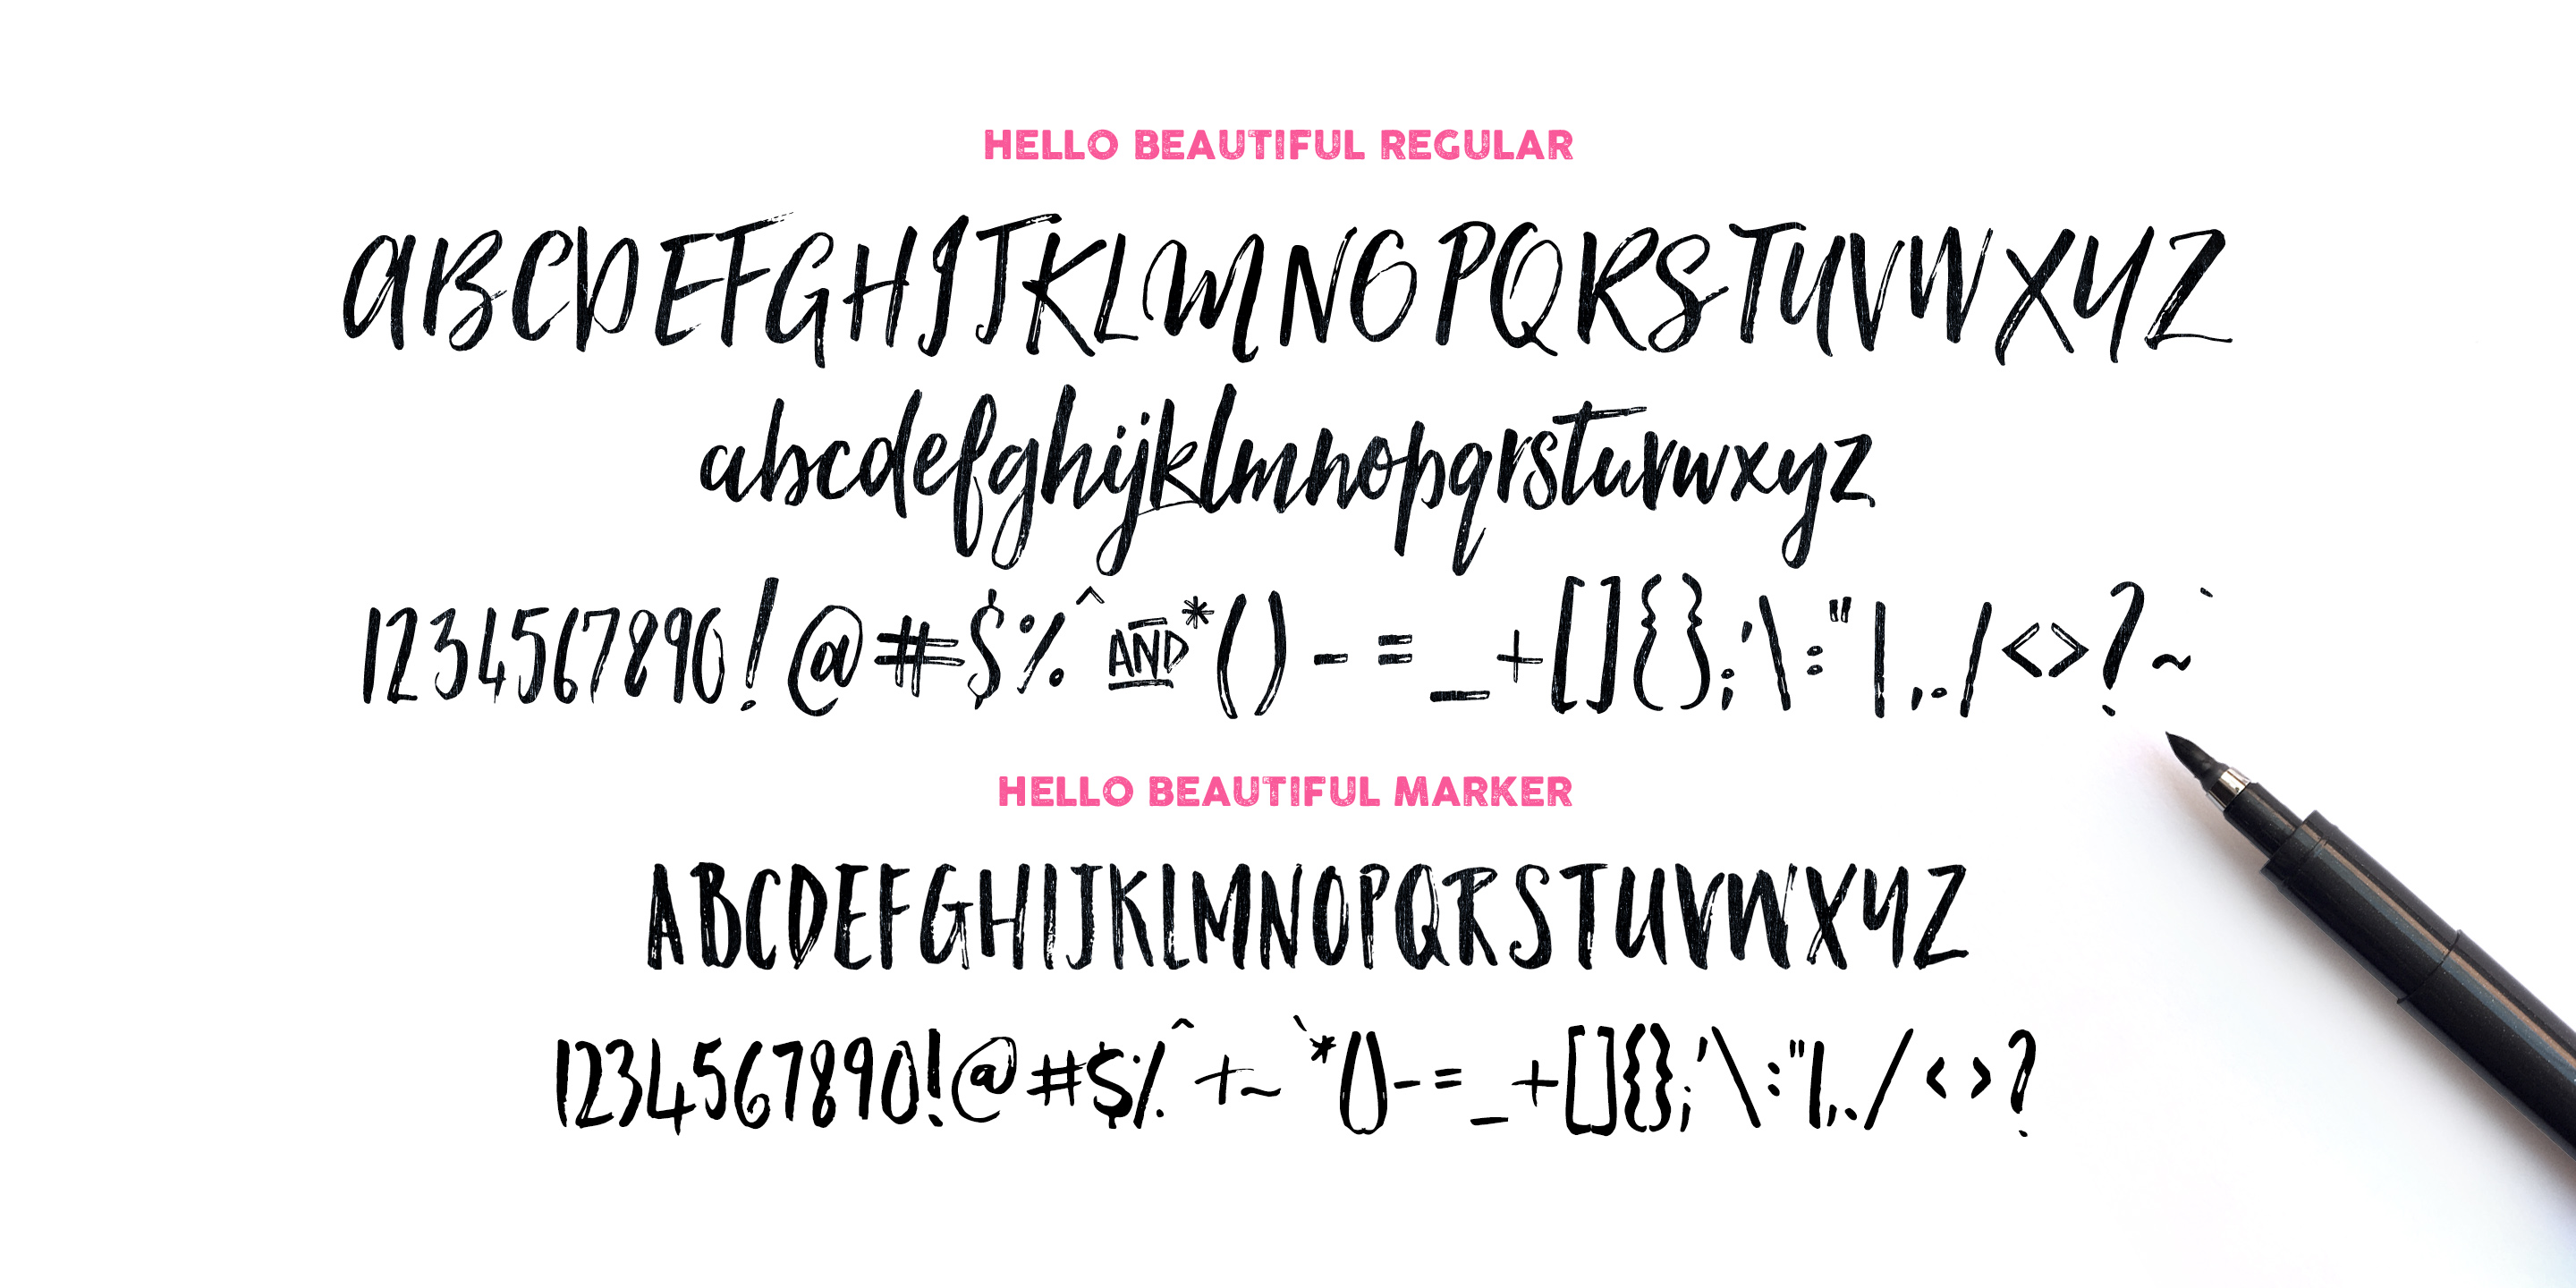 HELLO BEAUTIFUL REGULAR
ABCDEFGHIJKLMNOPQRSTUVWXYZ
abcdefghijklmnopqrstuvwxyz
1234567890!@#$%^AND*()-=_+[]{};'\:"|,./<>?~`
HELLO BEAUTIFUL MARKER
ABCDEFGHIJKLMNOPQRSTUVWXYZ
1234567890!@#$%^+~`*()-=_+[]{};'\:"|,./<>?